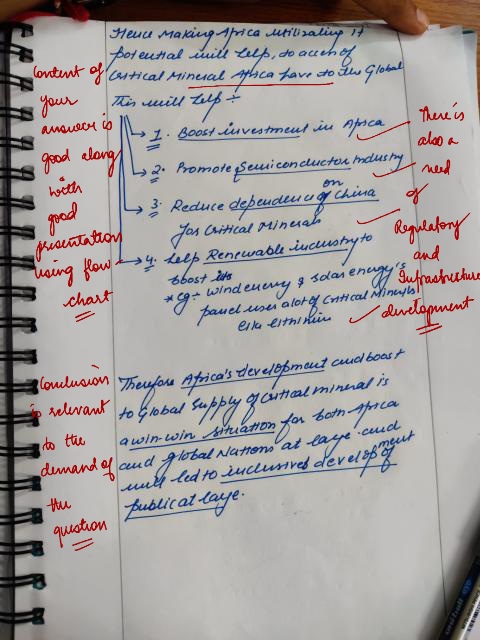 Hence Making Africa utilizaling it
potential will help, to access of
Critical Mineral Africa have to the Global
This will help :-
1. Boost investment in Africa
2. Promote Semiconductor Industry
3. Reduce dependence on of China
for Critical Minerals
4. Help Renewable industry to
boost its
* eg :- wind energy & solar energy's
panel uses a lot of Critical Minerals
like lithium
Therefore Africa's development and boost
to Global Supply of critical mineral is
a win-win situation for both Africa
and global Nations at large. and
will led to inclusives development of
public at large.
Content of
your
answer is
good along
with
good
presentation
using flow
chart
There is
also a
need
of
Regulatory
and
Infrastructure
development
Conclusion
is relevant
to the
demand of
the
question